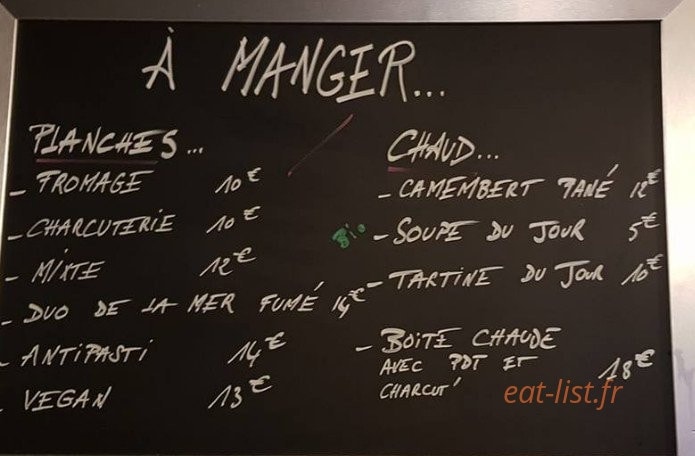 À MANGER...
PLANCHES...
- FROMAGE 10€
- CHARCUTERIE 10€
- MIXTE 12€
- DUO DE LA MER FUMÉ 14€
- ANTIPASTI 14€
- VEGAN 13€
CHAUD...
- CAMEMBERT PANÉ 12€
Bio - SOUPE DU JOUR 5€
- TARTINE DU JOUR 10€
- BOITE CHAUDE
AVEC PDT ET
CHARCUT' 18€
eat-list.fr